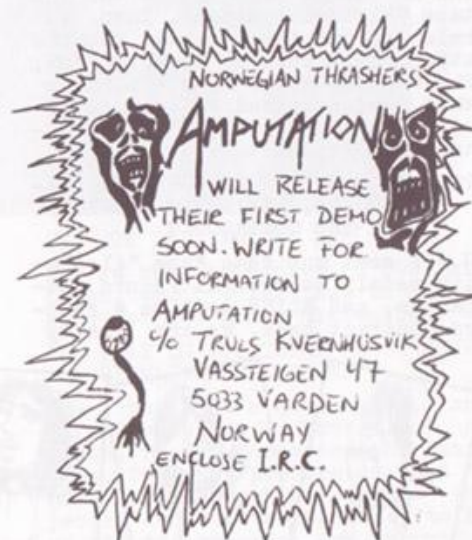 NORWEGIAN THRASHERS
AMPUTATION
WILL RELEASE
THEIR FIRST DEMO
SOON. WRITE FOR
INFORMATION TO
AMPUTATION
c/o TRULS KVERNHUSVIK
VASSTEIGEN 47
5033 VARDEN
NORWAY
ENCLOSE I.R.C.